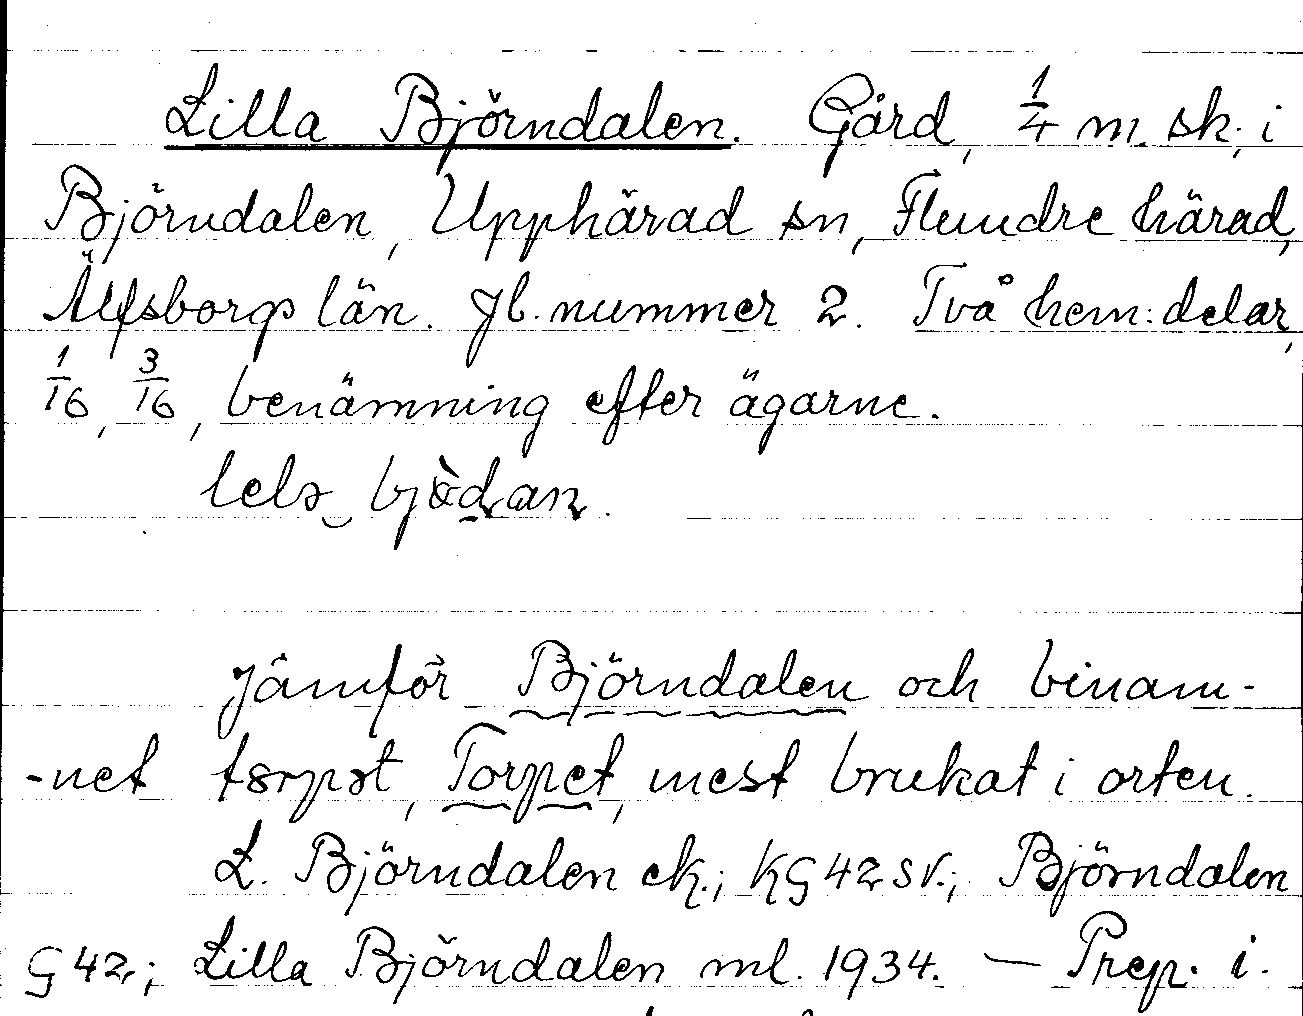 Lilla Björndalen. Gård, 1/4 m. sk; i
Björndalen, Upphärad sn, Flundre härad,
Älfsborgs län. Jb. nummer 2. Två hem: delar,
1/16, 3/16, benämning efter ägarne.
Jämför Björndalen och binam-
-net Torpet, mest brukat i orten.
L. Björndalen ek.; KG 42 SV.; Björndalen
G 42.; Lilla Björndalen ml. 1934. — Prep. i.